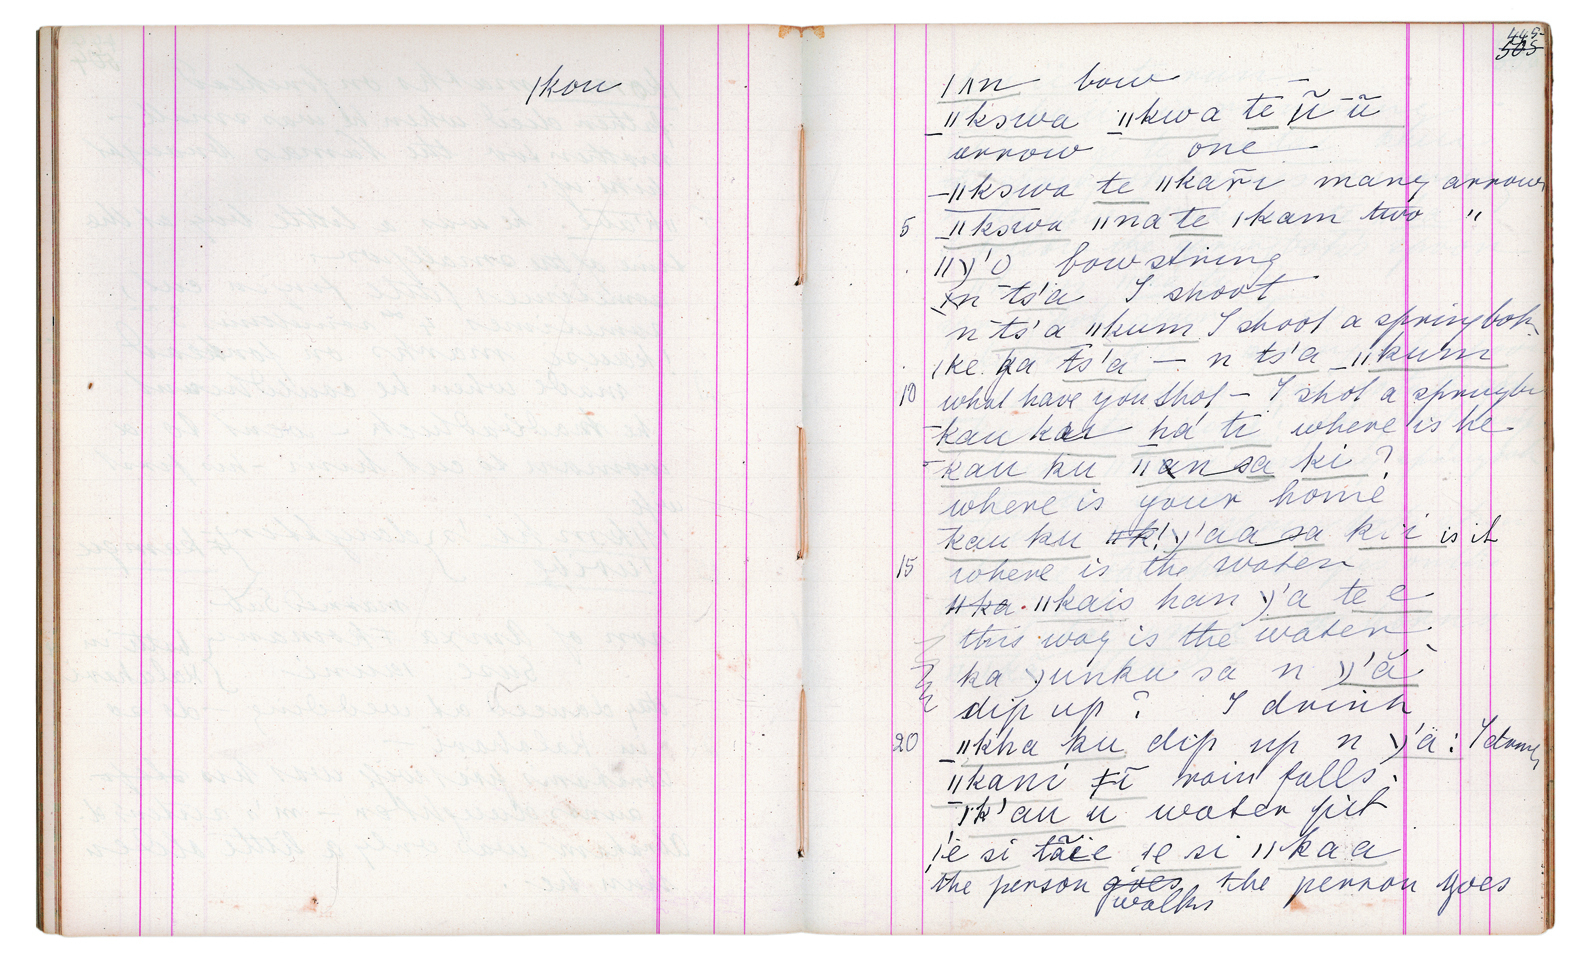 |kou
445
505
|ʌn bow
||kswa ||kwa te ũ ũ
arrow one
||kswa te ||kar̃ɩ many arrows
5 ||kswa ||na te |kam two "
||)'o bowstring
n ts'a I shoot
n ts'a ||kum I shoot a springbok
|ke ga ts'a — n ts'a ||kum
10 what have you shot — I shot a springbo
kau ku há ti where is he
kau ku ||an sa ki ?
where is your home
kau ku k! )'aa sa kii is it
15 where is the water
||ka ||kais han )'a te e
this way is the water
ka )unku sa n )'ă
dip up ? I drink
20 ||kha ku dip up n )'ă : I drink
||kani ǂī rain falls.
|k'au u water pit
|é si tãie |e si ||kaa
the person goes the person goes
walks